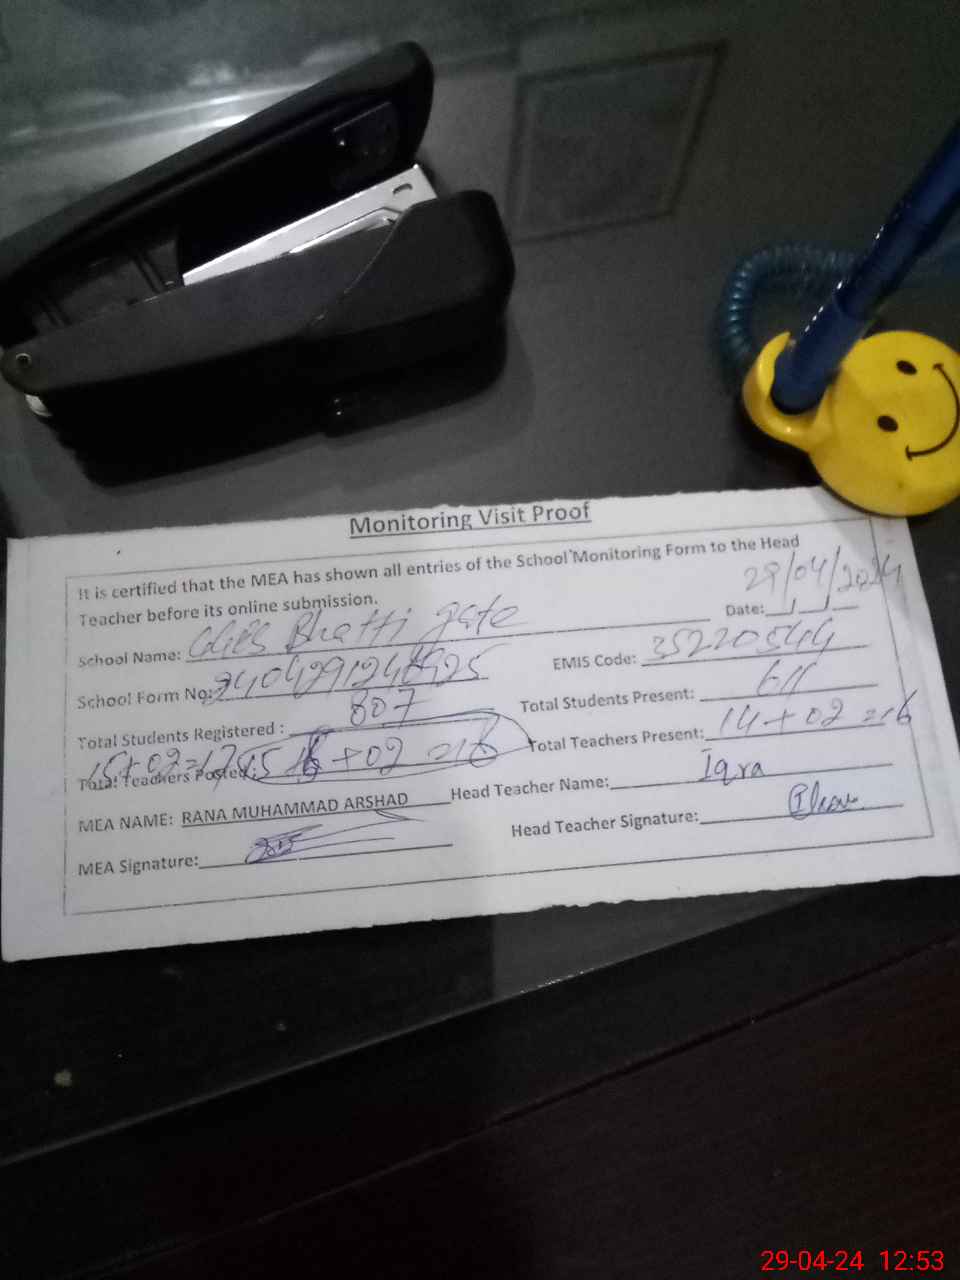 Monitoring Visit Proof
It is certified that the MEA has shown all entries of the School Monitoring Form to the Head
Teacher before its online submission.
Date: 29/04/2024
School Name: Bhatti gate
EMIS Code: 35220544
School Form No:
Total Students Present: 611
Total Students Registered : 807
Total Teachers Present: 14+02=16
Total Teachers Posted: 15+02=17 +02=16
Head Teacher Name: Iqra
MEA NAME: RANA MUHAMMAD ARSHAD
Head Teacher Signature:
MEA Signature:
29-04-24 12:53